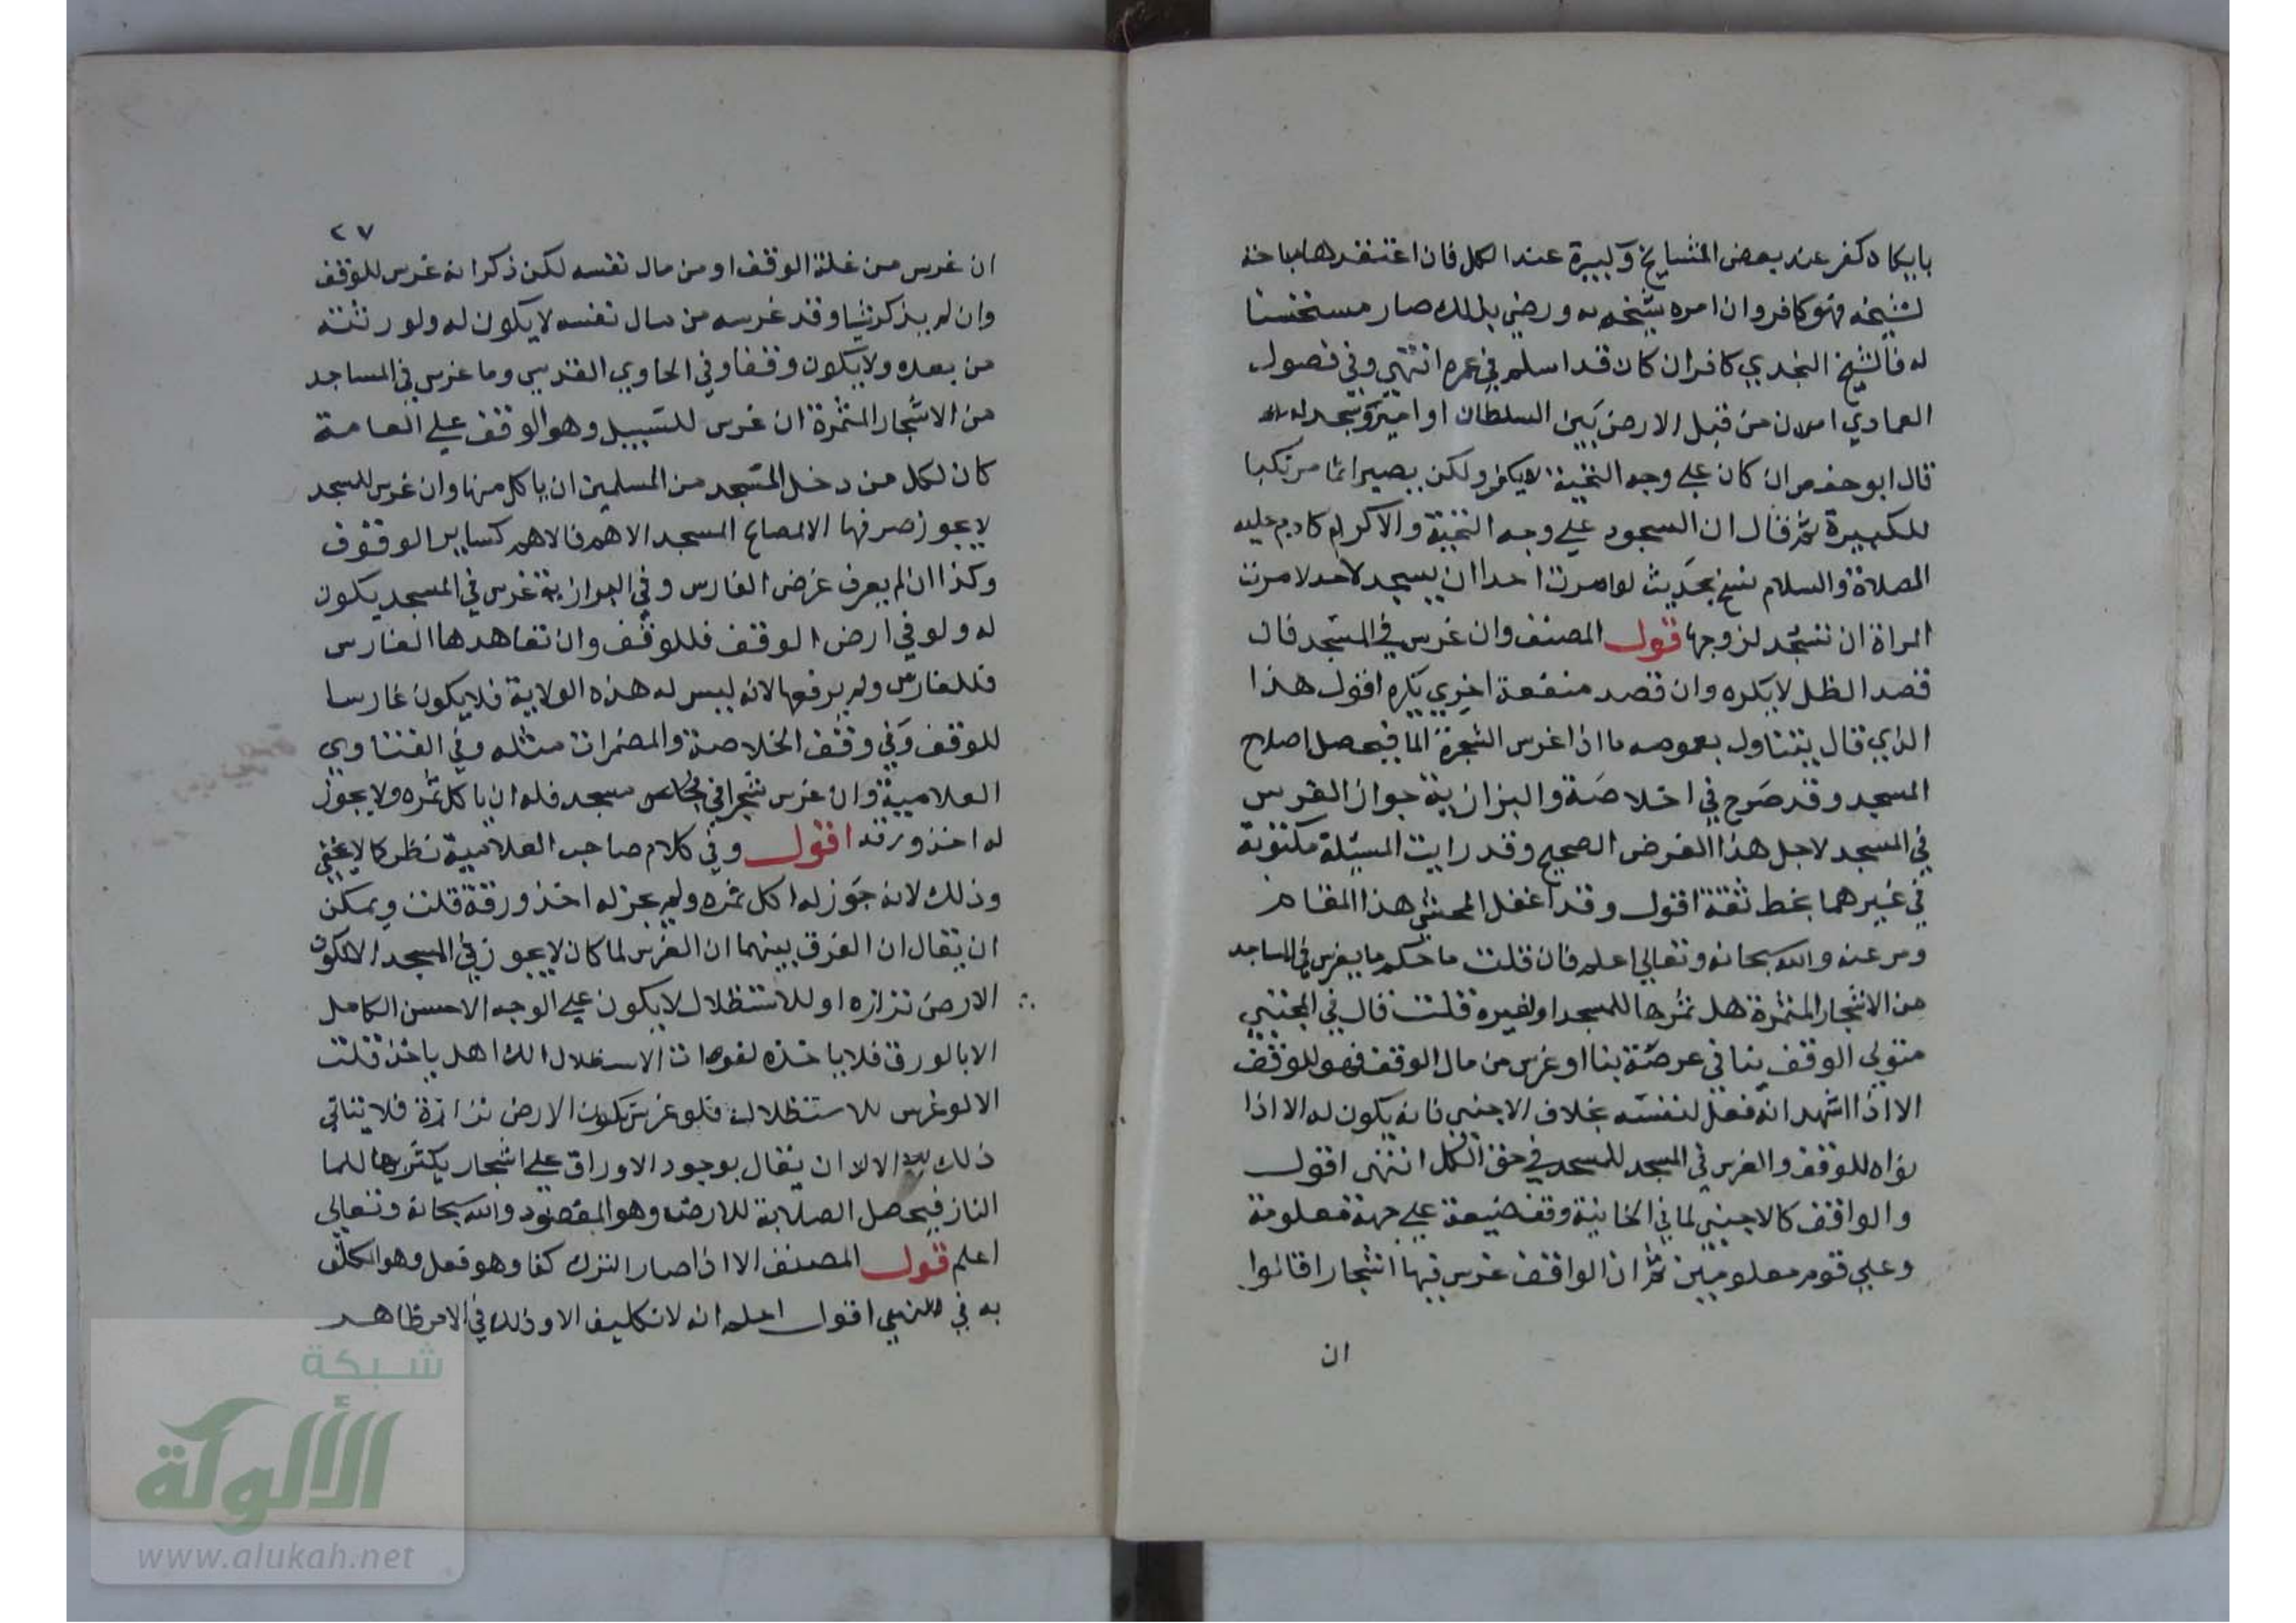 بابكاد كفر عند بعض المشايخ وكبيرة عند الكل فان اعتقدها مباحة
لشيخه فهو كافر وان امره شيخه به ورضي بذلك صار مستحسنا
له فالشيخ النجدي كافر ان كان قد اسلم في عمره انتهى وفي فصول
العمادي من قبل الارض بين السلطان او امير وسجد له
قال ابو جعفر ان كان على وجه التحية لا يكفر ولكن يصير اثما مرتكبا
للكبيرة ثم قال ان السجود على وجه التحية والاكرام كادم عليه
الصلاة والسلام نسخ بحديث لو امرت احدا ان يسجد لاحد لامرت
المراة ان تسجد لزوجها قول المصنف وان غرس في المسجد فان
قصد الظل لا يكره وان قصد منفعة اخرى يكره اقول هذا
الذي قال يتناول بعمومه ما اذا غرس الشجرة فيحصل اصلاح
المسجد وقد صرح في اخلاصة والبزازية جواز الغرس
في المسجد لاجل هذا الغرض الصحيح وقد رايت المسئلة مكتوبة
في غيرهما بخط ثقة اقول وقد اغفل المحشي هذا المقام
ومر عنه والله سبحانه وتعالى اعلم فان قلت ما حكم ما يغرس في المساجد
من الاشجار المثمرة هل ثمرها للمسجد او لغيره قلت قال في المجتبى
متولي الوقف بنا في عرصة بنا او غرس من مال الوقف فهو للوقف
الا اذا اشهد انه فعل لنفسه بخلاف الاجنبي فانه يكون له الا اذا
نواه للوقف والغرس في المسجد للمسجد في حق الكل انتهى اقول
والواقف كالاجنبي لما في الخانية وقف ضيعة على جهة معلومة
وعلى قوم معلومين ثم ان الواقف غرس فيها اشجارا قالوا
ان
٢٧
ان غرس من غلة الوقف او من مال نفسه لكن ذكر انه غرس للوقف
وان لم يذكر شيا وقد غرسه من مال نفسه لا يكون له ولورثته
من بعده ولا يكون وقفا وفي الحاوي القدسي وما غرس في المساجد
من الاشجار المثمرة ان غرس للسبيل وهو الوقف على العامة
كان لكل من دخل المسجد من المسلمين ان ياكل منها وان غرس للمسجد
لا يجوز صرفها الا لمصالح المسجد الاهم فالاهم كساير الوقوف
وكذا ان لم يعرف غرض الغارس وفي البزازية غرس في المسجد يكون
له ولو في ارض الوقف فللوقف وان تعاهدها الغارس
فللغارس ولم يرفعها لانه ليس له هذه الولاية فلا يكون غارسا
للوقف وفي وقف الخلاصة والمضمرات مثله وفي الفتاوي
العلامية وان غرس شجرا في مسجد فله ان ياكل ثمره ولا يجوز
له اخذ ورقه اقول وفي كلام صاحب العلامية نظر كما لا يخفى
وذلك لانه جوز له اكل ثمره ولم يجز له اخذ ورقة قلت ويمكن
ان يقال ان الفرق بينهما ان الغرس لما كان لا يجوز في المسجد الا لكون
الارض نزازه او للاستظلال لا يكون على الوجه الاحسن الكامل
الا بالورق فلا ياخذه لفوات الاستظلال اهل ياخذ قلت
الا لو غرس للاستظلال فلو غرس لكون الارض نزازة فلا يتاتى
ذلك الا ان يقال بوجود الاوراق على اشجار يكثر للما
الناز فيحصل الصلابة للارض وهو المقصود والله سبحانه وتعالى
اعلم قول المصنف الا اذا صار الترك كفا وهو فعل وهو المكلف
به في النهي اقول اعلم انه لا تكليف الا وذلك في الامر ظاهر
شبكة
الألوكة
www.alukah.net